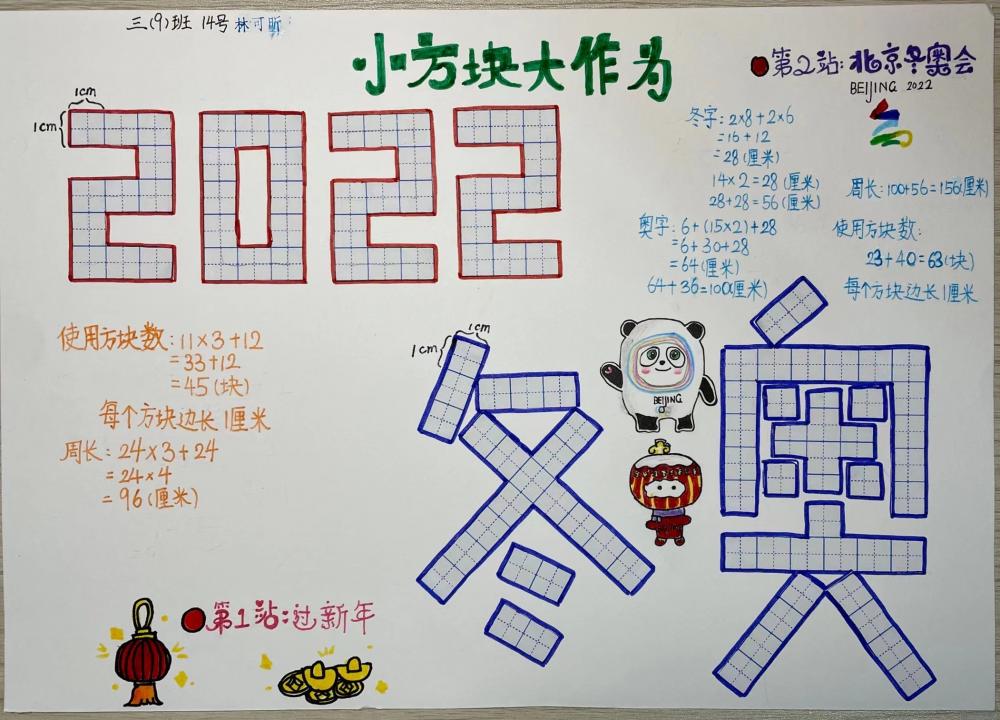 三(9)班 14号 林可昕
小方块大作为
第2站:北京冬奥会
BEIJING 2022
1cm
1cm
2022
冬字:2×8+2×6
=16+12
=28(厘米)
14×2=28(厘米)
28+28=56(厘米)
周长:100+56=156(厘米)
奥字:6+(15×2)+28
=6+30+28
=64(厘米)
64+36=100(厘米)
使用方块数:
23+40=63(块)
每个方块边长1厘米
使用方块数:11×3+12
=33+12
=45(块)
每个方块边长1厘米
周长:24×3+24
=24×4
=96(厘米)
1cm
1cm
冬奥
BEIJING
第1站:过新年